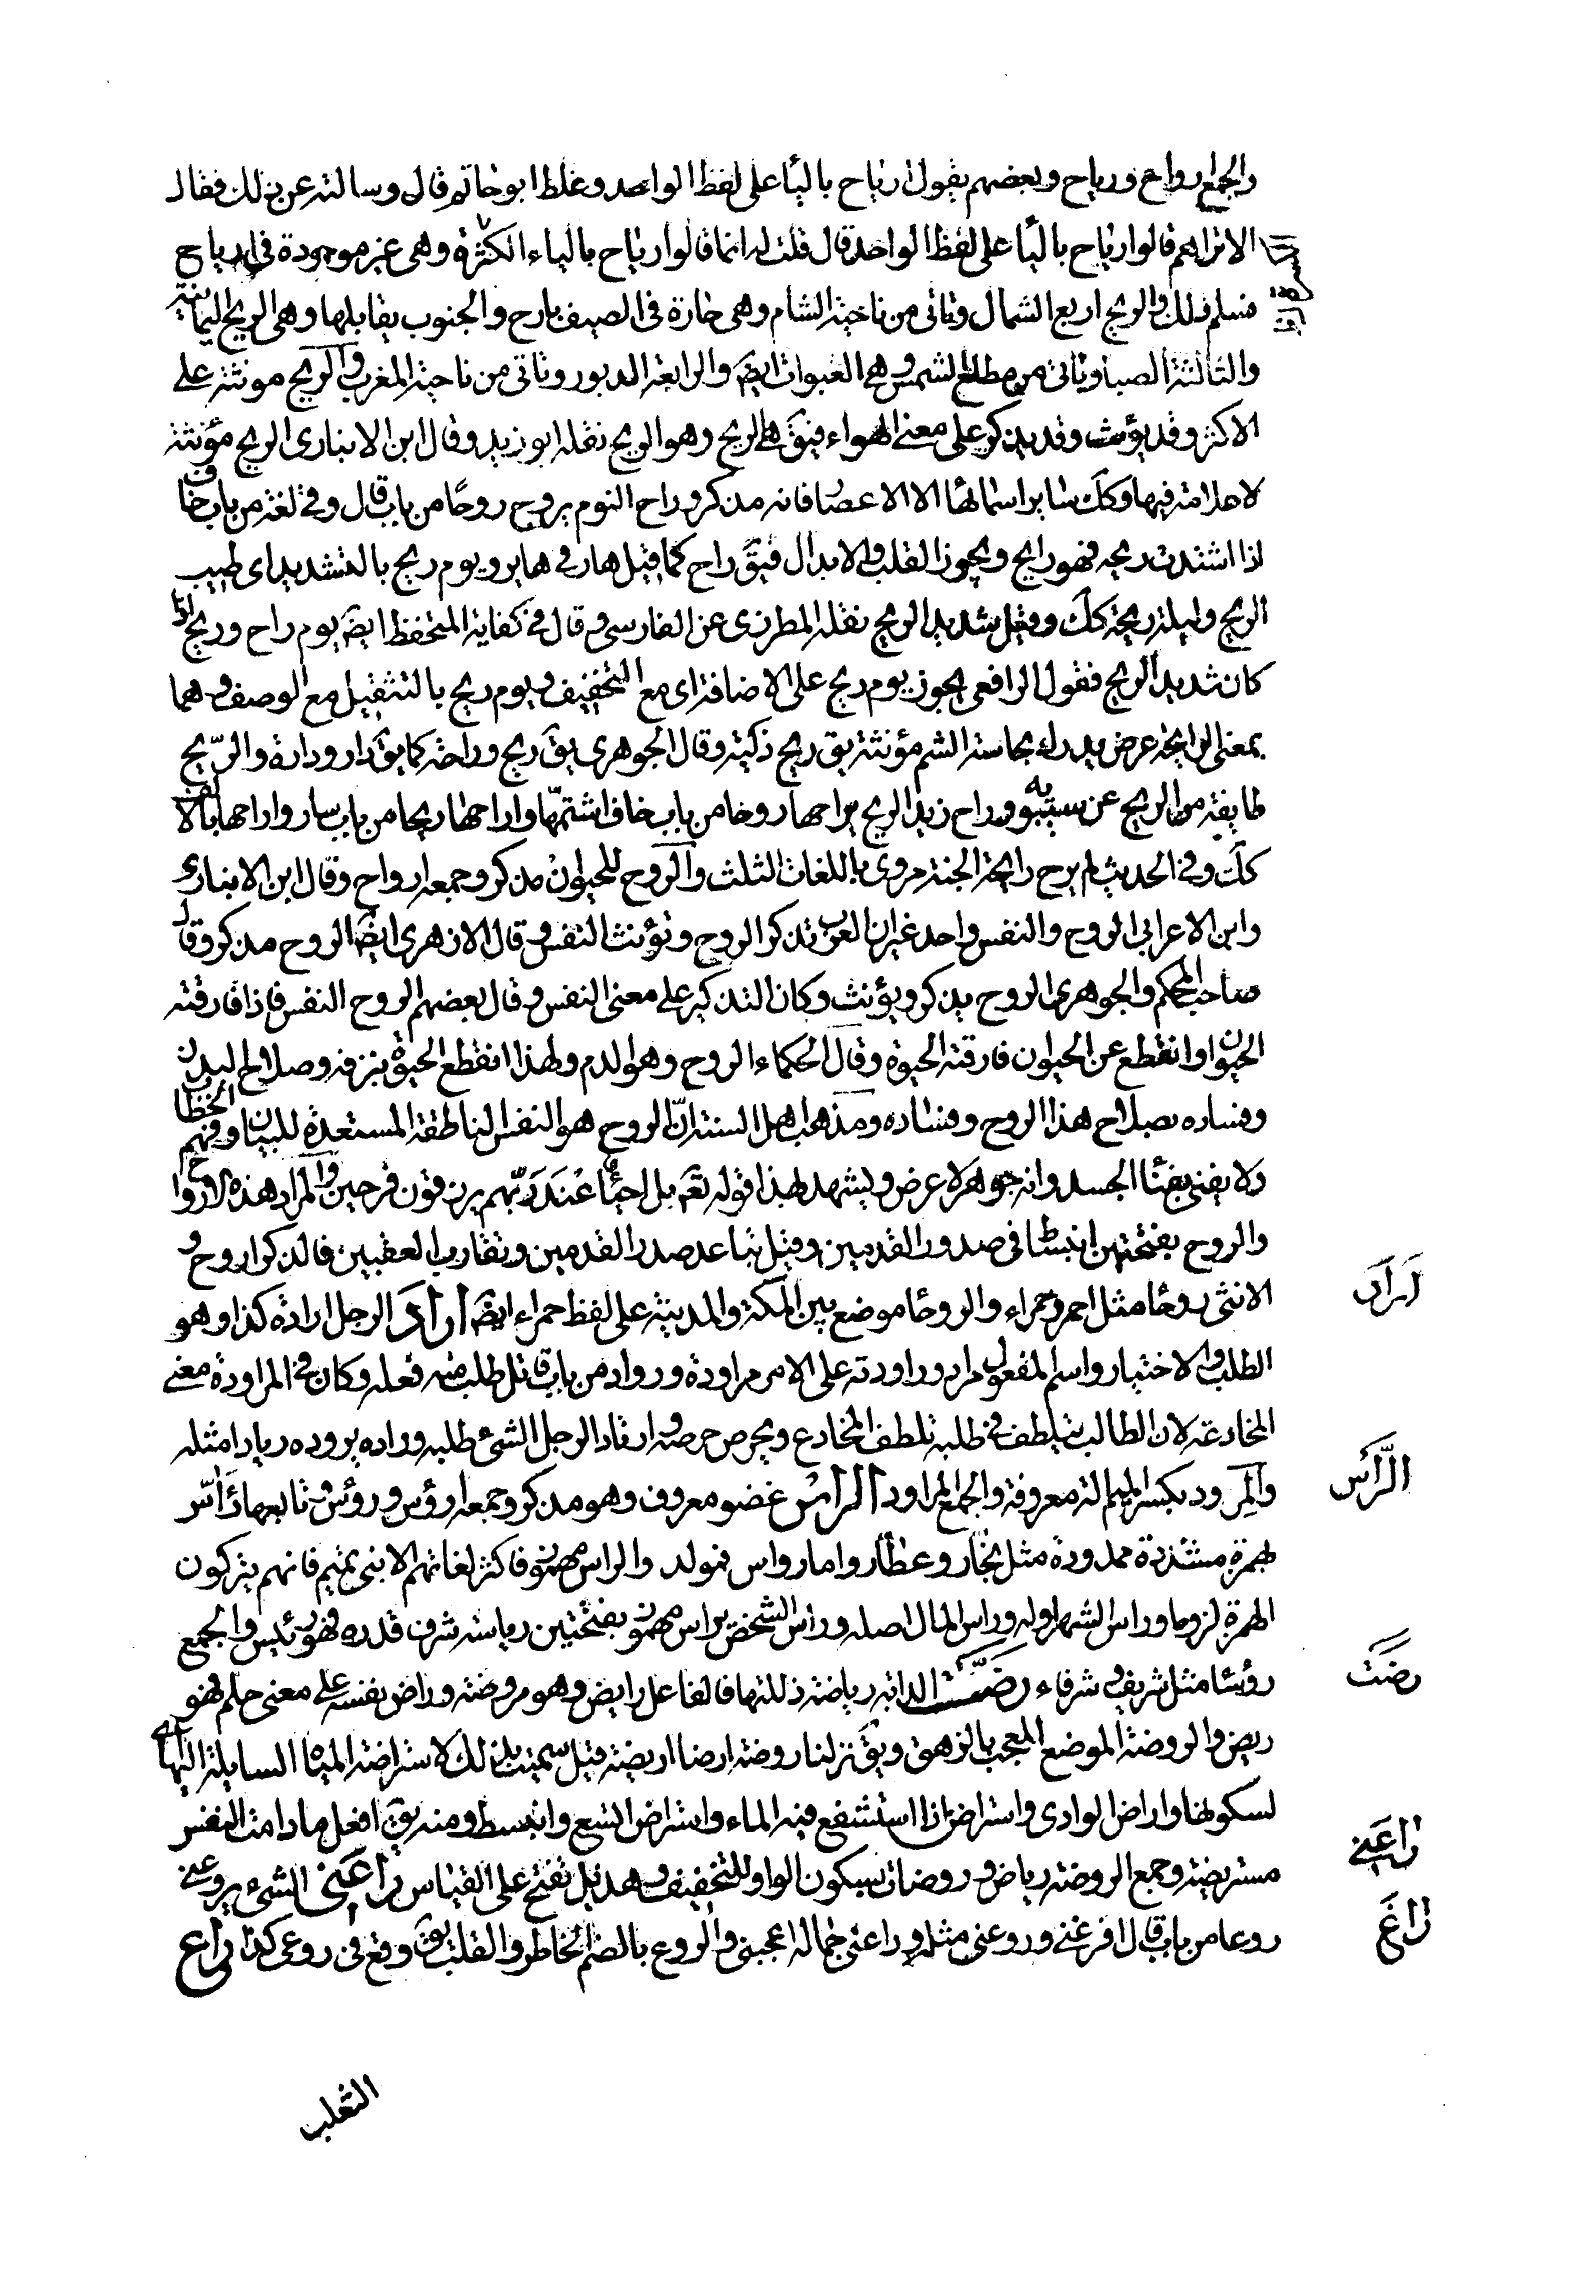 والجمع ارواح ورياح وبعضهم يقول ارياح باليا على لفظ الواحد وغلط ابو حاتم قال وسالته عن ذلك فقال
الا تراهم قالوا رياح باليا على لفظ الواحد قال قلت له انما قالوا رياح بالياء لكثرة وهى غير موجودة فى ارياح
فسلم ذلك والريح اربع الشمال وتاتى من ناحية الشام وهى حارة فى الصيف بارح والجنوب يقابلها وهى الريح اليمانية
والثالثة الصبا وتاتى من مطلع الشمس وهى القبول ايضه والرابعة الدبور وتاتى من ناحية المغرب والريح مونثة على
الاكثر وقد يؤنث وقد يذكر على معنى الهواء فيق هى الريح وهو الريح نقله ابو زيد وقال ابن الانبارى الريح مؤنثة
لا علامة فيها وكك ساير اسمائها الا الاعصار فانه مذكر وراح اليوم يروح روحا من باب قال وفى لغة من باب خاف
اذا اشتدت ريحه فهو رايح ويجوز القلب والابدال فيق راح كما قيل هار فى هاير ويوم ريح بالتشديد اى طيب
الريح وليلة ريحة كك وقيل شديد الريح نقله المطرزى عن الفارسى وقال فى كفاية المتحفظ ايضه يوم راح وريح اذا
كان شديد الريح فقول الرافعى يجوز يوم ريح على الاضافة اى مع التخفيف ويوم ريح بالتثقيل مع الوصف وهما
بمعنى الرايحة عرض يدرك بحاسة الشم مؤنثة يق ريح ذكية وقال الجوهرى يق ريح وراحة كما يق دار ودارة والريح
طايفة من الريح عن سيبويه وراح زيد الريح يراحها روحا من باب خاف اشتمها واراحها ريحا من باب سار واراحها بالالف
كك وفى الحديث لم يرح رايحة الجنة مروى باللغات الثلث والروح للحيوان مذكر وجمعه ارواح وقال ابن الانبارى
وابن الاعرابى الروح والنفس واحد غير ان العرب تذكر الروح وتؤنث النفس وقال الازهرى ايضه الروح مذكر وقال
صاحب المحكم والجوهرى الروح يذكر ويؤنث وكان التذكير على معنى النفس وقال بعضهم الروح النفس فاذا فارقته
الحيوان او انقطع عن الحيوان فارقته الحيوة وقال الحكماء الروح وهو الدم ولهذا انقطع الحيوة بنزفه وصلاح البدن
وفساده بصلاح هذا الروح وفساده ومذهب اهل السنة ان الروح هو النفس الناطقة المستعدة للبيان وفهم الخطاب
ولا يفنى بفنا الجسد وانه جوهر لا عرض ويشهد لهذا قوله تعه بل احياء عند ربهم يرزقون فرحين والمراد هذه الارواح
والروح بفتحتين انبساط فى صدور القدمين وقيل تباعد صدر القدمين وتقارب العقبين فالذكر اروح و
الانثى روحا مثل احمر وحمراء والروحا موضع بين المكة والمدينة على لفظ حمراء ايضه اراد الرجل ارادة كذا وهو
الطلب والاختيار واسم المفعول مراد وراودته على الامر مراودة ورواد من باب قاتل طلبت منه فعله وكان فى المراودة معنى
المخادعة لان الطالب يتلطف فى طلبه تلطف المخادع ويحرص حرصه وارتاد الرجل الشئ طلبه وراده يروده ريادا مثله
والمرود بكسر الميم الة معروفة والجمع المراود الراس عضو معروف وهو مذكر وجمعه ارؤس ورؤس وتابعها رآس
بهمزة مشددة ممدودة مثل نجار وعطار واما رواس فمولد والراس مهموز فى اكثر لغاتهم الا بنى تميم فانهم يتركون
الهمزة لزوما وراس الشهر اوله وراس المال اصله وراس الشخص يراس مهموز بفتحتين رياسة شرف قدره فهو رئيس والجمع
رؤسا مثل شريف وشرفاء رضت الدابة رياضة ذللتها فالفاعل رايض وهو مروضة وراض نفسه على معنى حلم فهو
ريض والروضة الموضع المعجب بالزهق ويق نزلنا روضة ارضا اريضة قيل سميت بذلك لاستراضة المياه السايلة اليها اى
لسكونها واراض الوادى واستراض اذا استنقع فيه الماء واستراض اتسع وانبسط ومنه يق افعل ما دامت النفس
مستريضة وجمع الروضة رياض وروضات بسكون الواو للتخفيف وهذيل تفتح على القياس راعنى الشئ يروعنى
روعا من باب قال افزعنى وروعنى مثله وراعنى جماله اعجبنى والروع بالضم الخاطر والقلب يق وقع فى روعى كذا راغ
اراد
الراس
رضت
راعنى
راغ
الثعلب